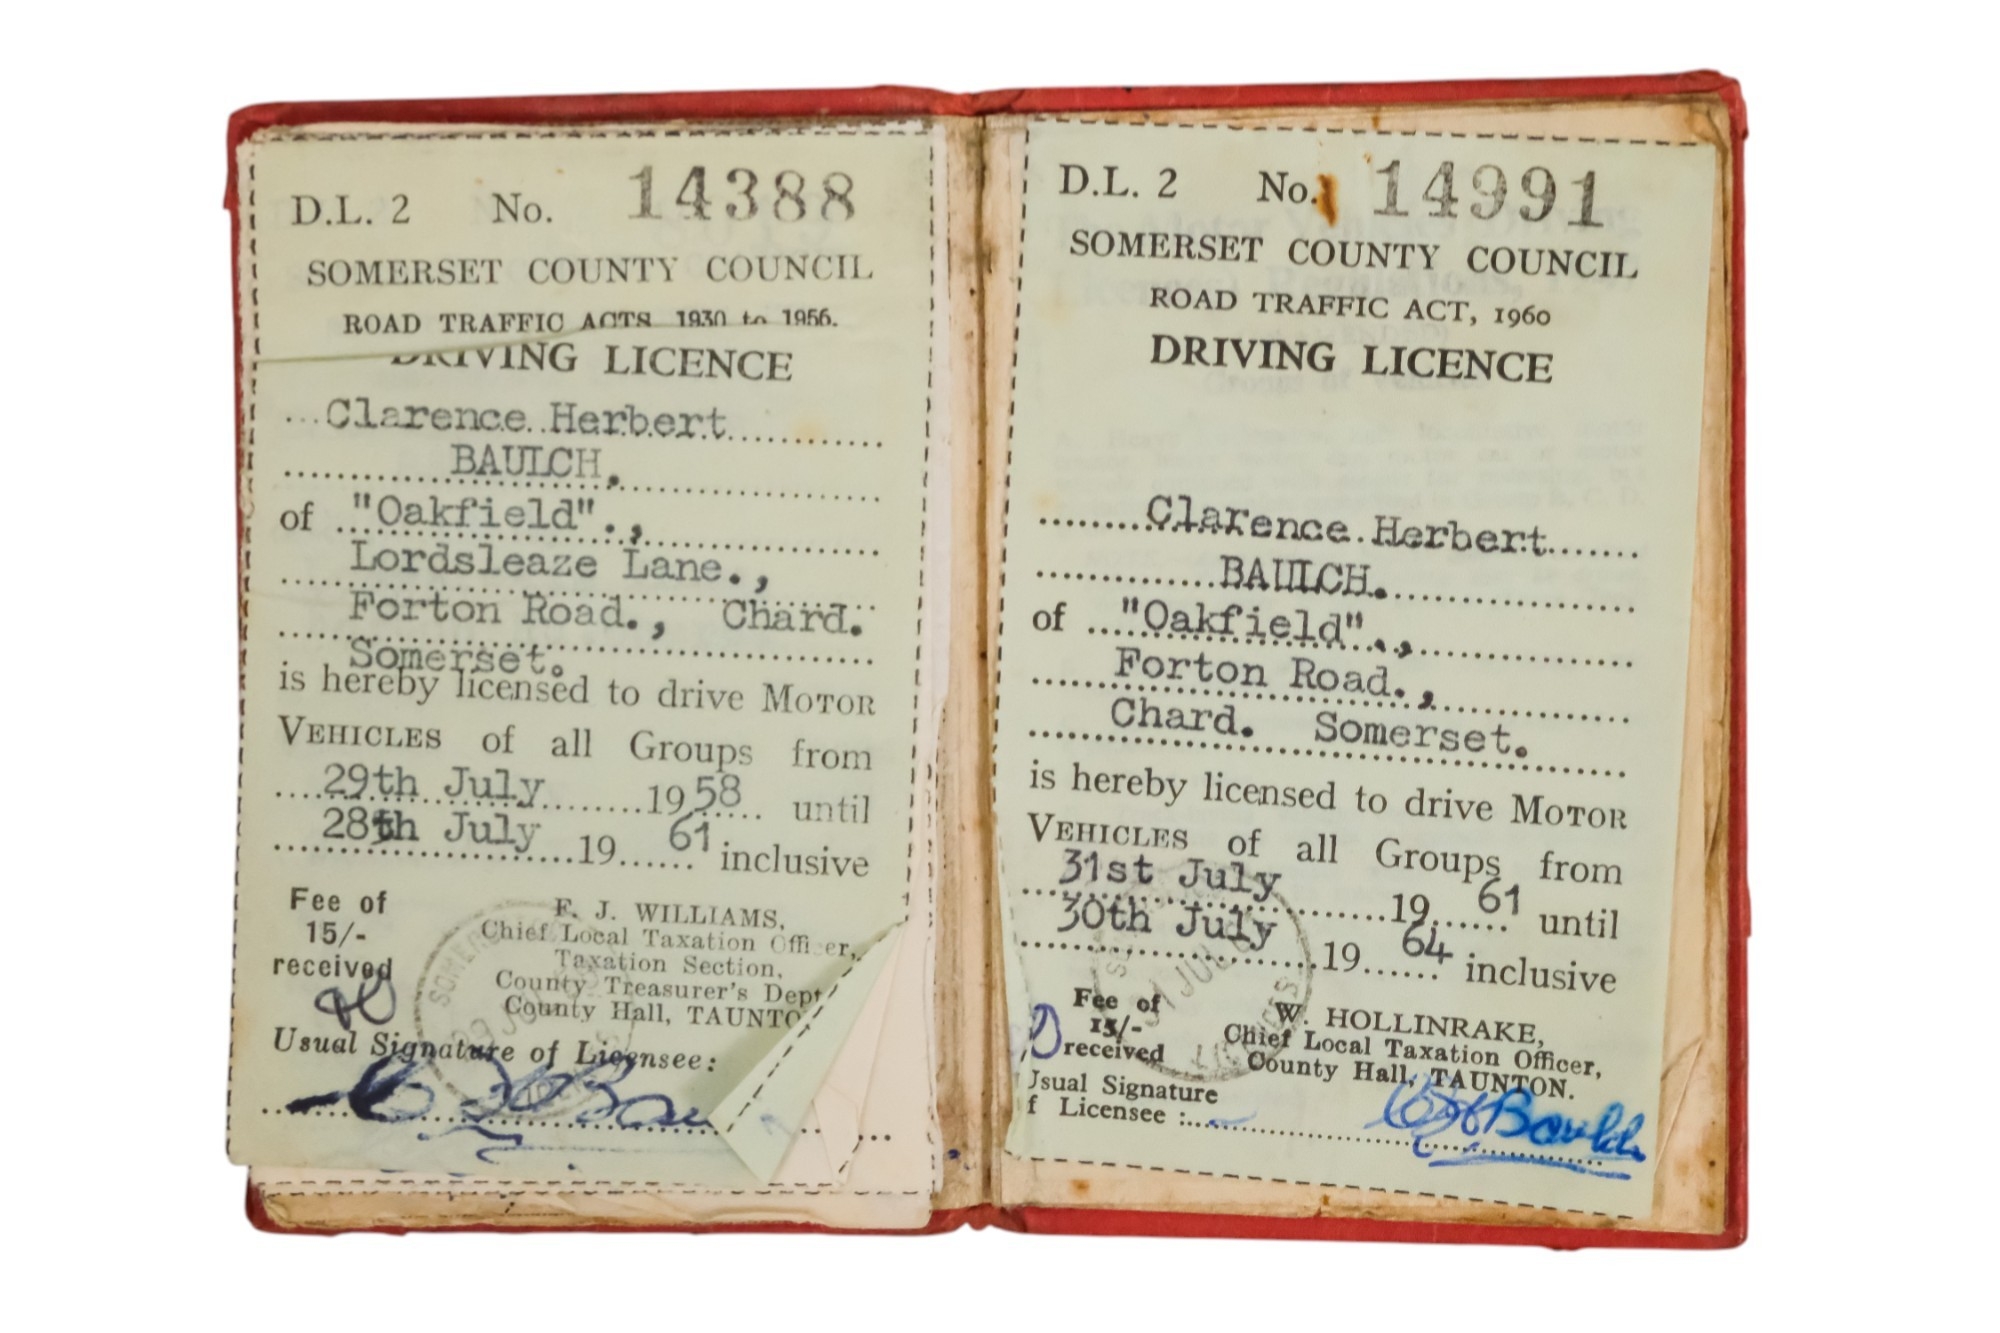 D.L. 2 No. 14388
SOMERSET COUNTY COUNCIL
ROAD TRAFFIC ACTS 1930 to 1956.
DRIVING LICENCE
Clarence Herbert
BAULCH.
of "Oakfield".,
Lordsleaze Lane.,
Forton Road., Chard.
Somerset.
is hereby licensed to drive MOTOR
VEHICLES of all Groups from
29th July 1958 until
28th July 1961 inclusive
Fee of
15/-
received
F. J. WILLIAMS,
Chief Local Taxation Officer,
Taxation Section,
County Treasurer's Dept
County Hall, TAUNTO
Usual Signature of Licensee:
D.L. 2 No. 14991
SOMERSET COUNTY COUNCIL
ROAD TRAFFIC ACT, 1960
DRIVING LICENCE
Clarence Herbert
BAULCH.
of "Oakfield".,
Forton Road.,
Chard. Somerset.
is hereby licensed to drive MOTOR
VEHICLES of all Groups from
31st July 1961 until
30th July 1964 inclusive
Fee of
15/-
received
W. HOLLINRAKE,
Chief Local Taxation Officer,
County Hall, TAUNTON.
Usual Signature
f Licensee :
C H Baulch